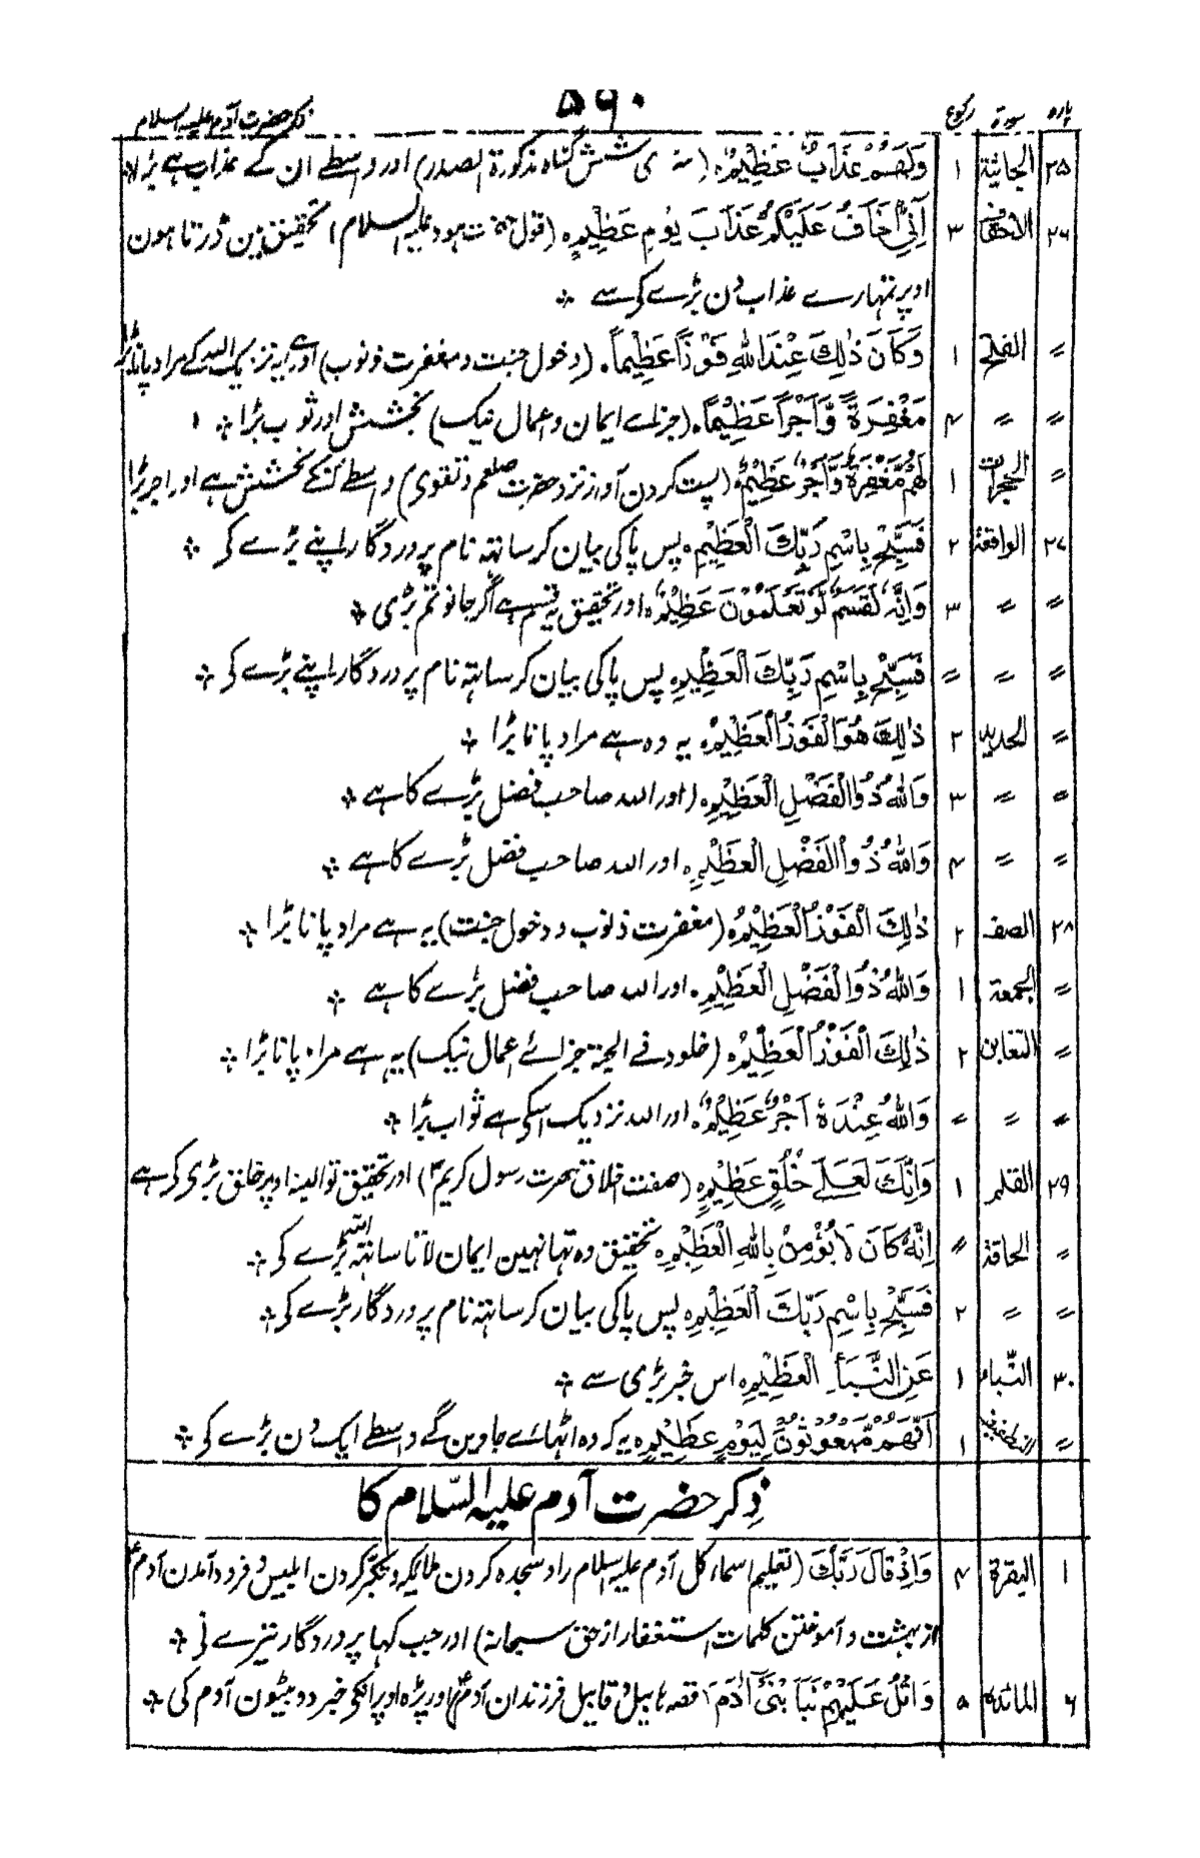 پارہ سورۃ رکوع ۵۶۰ ذکر حضرت آدم علیہ السلام
۲۵ الجاثیۃ ۱ وَلَهُمْ عَذَابٌ عَظِيْمٌ٥ ( گناہ مذکورۃ الصدر) اور واسطے ان کے عذاب ہے بڑا
۲۶ الاحقاف ۳ اِنِّیْ اَخَافُ عَلَيْكُمْ عَذَابَ يَوْمٍ عَظِيْمٍ٥ (قول حضرت ہود علیہ السلام) تحقیق مین ڈرتا ہون
اوپر تمہارے عذاب دن بڑے کو سے ❖
〃 الفتح ۱ وَكَانَ ذٰلِكَ عِنْدَ اللّٰهِ فَوْزًا عَظِيْماً. (دخول جنت و مغفرت ذنوب) اور ہے یہ نزدیک اللہ کے مراد پانا بڑا
〃 〃 ۴ مَغْفِرَةً وَّاَجْرًا عَظِيْمًا. (جزاے ایمان و اعمال نیک) بخشش اور ثوب بڑا ❖
〃 الحجرات ۱ لَهُمْ مَّغْفِرَةٌ وَّاَجْرٌ عَظِيْمٌ٥ (پست کردن آواز نزد حضرت صلعم و تقوی) واسطے انکے بخشش ہے اور اجر بڑا
۲۷ الواقعۃ ۲ فَسَبِّحْ بِاسْمِ رَبِّكَ الْعَظِيْمِ٥ پس پاکی بیان کر ساتہ نام پروردگار اپنے بڑے کو ❖
〃 〃 ۳ وَاِنَّهٗ لَقَسَمٌ لَّوْ تَعْلَمُوْنَ عَظِيْمٌ٥ اور تحقیق یہ قسم ہے اگر جانو تم بڑی ❖
〃 〃 〃 فَسَبِّحْ بِاسْمِ رَبِّكَ الْعَظِيْمِ٥ پس پاکی بیان کر ساتہ نام پروردگار اپنے بڑے کو ❖
〃 الحدید ۲ ذٰلِكَ هُوَ الْفَوْزُ الْعَظِيْمُ٥ یہ وہ ہے مراد پانا بڑا ❖
〃 〃 ۳ وَاللّٰهُ ذُو الْفَضْلِ الْعَظِيْمِ٥ (اور اللہ صاحب فضل بڑے کا ہے ❖
〃 〃 ۴ وَاللّٰهُ ذُو الْفَضْلِ الْعَظِيْمِ٥ اور اللہ صاحب فضل بڑے کا ہے ❖
۲۸ الصف ۲ ذٰلِكَ الْفَوْزُ الْعَظِيْمُ٥ (مغفرت ذنوب و دخول جنت) یہ ہے مراد پانا بڑا ❖
〃 الجمعۃ ۱ وَاللّٰهُ ذُو الْفَضْلِ الْعَظِيْمِ. اور اللہ صاحب فضل بڑے کا ہے ❖
〃 التغابن ۲ ذٰلِكَ الْفَوْزُ الْعَظِيْمُ٥ (خلود فے الجنۃ جزائے اعمال نیک) یہ ہے مراد پانا بڑا ❖
〃 〃 〃 وَاللّٰهُ عِنْدَهٗ اَجْرٌ عَظِيْمٌ٥ اور اللہ نزدیک اسکی ہے ثواب بڑا ❖
۲۹ القلم ۱ وَاِنَّكَ لَعَلٰے خُلُقٍ عَظِيْمٍ٥ (صفت اخلاق حضرت رسول کریم) اور تحقیق تو البتہ اوپر خلق بڑی کو ہے
〃 الحاقۃ 〃 اِنَّهٗ كَانَ لَا يُؤْمِنُ بِاللّٰهِ الْعَظِيْمِ٥ تحقیق وہ تہا نہین ایمان لاتا ساتہ اللہ بڑے کی ❖
〃 〃 ۲ فَسَبِّحْ بِاسْمِ رَبِّكَ الْعَظِيْمِ٥ پس پاکی بیان کر ساتہ نام پروردگار بڑے کو ❖
۳۰ النّباء ۱ عَنِ النَّبَأِ الْعَظِيْمِ٥ اس خبر بڑی سے ❖
〃 المطففین ۱ اَنَّهُمْ مَّبْعُوْثُوْنَ لِيَوْمٍ عَظِيْمٍ٥ یہ کہ وہ اٹہائے جاوین گے واسطے ایک دن بڑے کو ❖
ذکر حضرت آدم علیہ السّلام کا
۱ البقرۃ ۴ وَاِذْ قَالَ رَبُّكَ (تعلیم اسماء کل آدم علیہ السلام را و سجدہ کردن ملائیکہ و تکبّر کردن ابلیس و فرود آمدن آدم
از بہشت و آموختن کلمات استغفار از حق سبحانہ) اور جب کہا پروردگار تیرے نی ❖
۶ المائدہ ۵ وَاتْلُ عَلَيْهِمْ نَبَاَ ابْنَیْ اٰدَمَ قصہ ہابیل و قابیل فرزندان آدم اور پڑہ اوپر انکو خبر دو بیٹیون آدم کی ❖